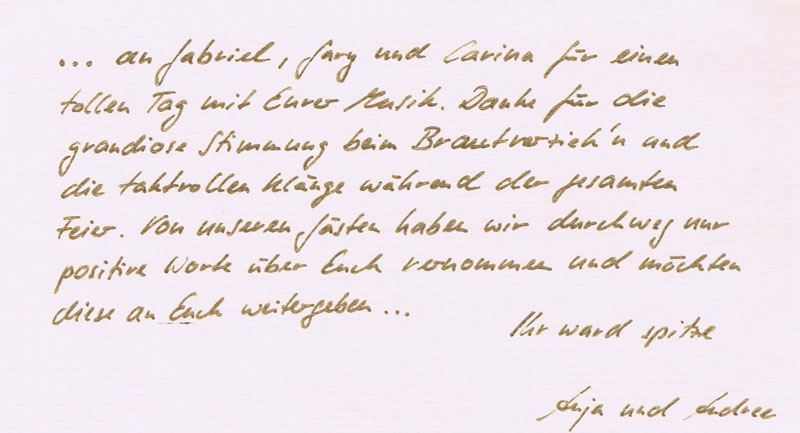 ... an Gabriel, Gary und Carina für einen
tollen Tag mit Eurer Musik. Danke für die
grandiose Stimmung beim Brautverzieh'n und
die taktvollen Klänge während der gesamten
Feier. Von unseren Gästen haben wir durchweg nur
positive Worte über Euch vernommen und möchten
diese an Euch weitergeben...
Ihr ward spitze
Anja und Andree